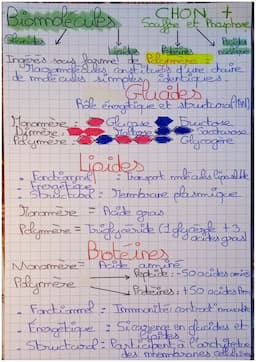 Biomolécules CHON +
Souffre et Phosphore
Glucides Lipides Protéines Acides
Ingérés sous forme de Polymère :
Macromolécules constituées d'une chaîne
de molécules simples identiques.
Glucides
Rôle énergétique et structural
Monomère : Glucose Fructose
Dimère : Maltose Saccharose
Polymère : Glycogène
Lipides
• Fonctionnel :
• Energétique
• Structural = Membrane plasmique
Monomère = Acide gras
Polymère = Triglycéride (1 glycérol + 3
acides gras)
Protéines
Monomère = Acide aminé
Peptide : 50 acides aminés
Polymère
Protéines : +50 acides
• Fonctionnel = Immunité
• Energétique = Si carence en glucides et
lipides
• Structural = Participent à l'architecture
des membranes cellulaires